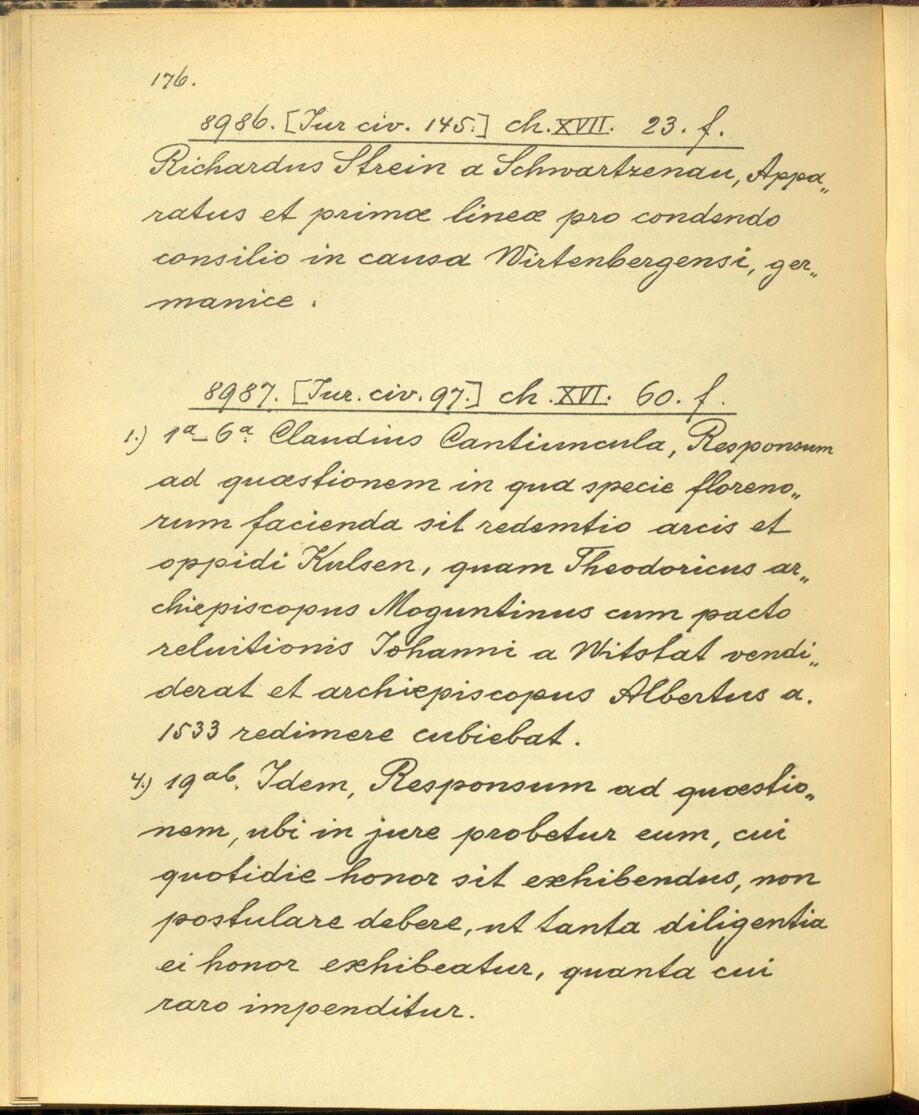 176.
8986. [Iur civ. 145.] ch. XVII. 23. f.
Richardus Strein a Schwartzenau, Appa„
ratus et primæ lineæ pro condendo
consilio in causa Wirtenbergensi, ger„
manice.
8987. [Iur. civ. 97.] ch. XVI. 60. f.
1.) 1ª–6ª. Claudius Cantiuncula, Responsum
ad quæstionem in qua specie floreno„
rum facienda sit redemtio arcis et
oppidi Kulsen, quam Theodoricus ar„
chiepiscopus Moguntinus cum pacto
reluitionis Iohanni a Witstat vendi„
derat et archiepiscopus Albertus a.
1533 redimere cubiebat.
4.) 19ᵃᵇ. Idem, Responsum ad quæstio„
nem, ubi in jure probetur eum, cui
quotidie honor sit exhibendus, non
postulare debere, ut tanta diligentia
ei honor exhibeatur, quanta cui
raro impenditur.